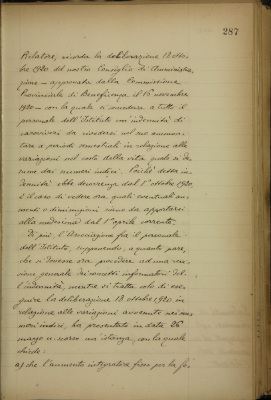 287
Relatore, ricorda la deliberazione 18 otto-
bre 1920 del nostro Consiglio di Amministra-
zione – approvata dalla Commissione
Provinciale di Beneficenza il 15 novembre
1920 – con la quale si concedeva a tutto il
personale dell'Istituto un'indennità di
caroviveri da rivedersi nel suo ammon-
tare a periodi semestrali in relazione alle
variazioni nel costo della vita quali si de-
sumono dai numeri indici. Poiché detta in-
dennità ebbe decorrenza dal 1° ottobre 1920,
è il caso di vedere ora quali eventuali au-
menti o diminuzioni siano da apportarsi
alla medesima dal 1° aprile corrente.
Di più l'Associazione fra il personale
dell'Istituto, supponendo, a quanto pare,
che si dovesse ora procedere ad una revi-
sione generale dei concetti informatori del-
l'indennità, mentre si tratta solo di ese-
guire la deliberazione 18 ottobre 1920 in
relazione alle variazioni avvenute nei nu-
meri indici, ha presentato in data 26
marzo u. scorso un'istanza, con la quale
chiede:
a) che l'aumento integratore fisso per la fa-